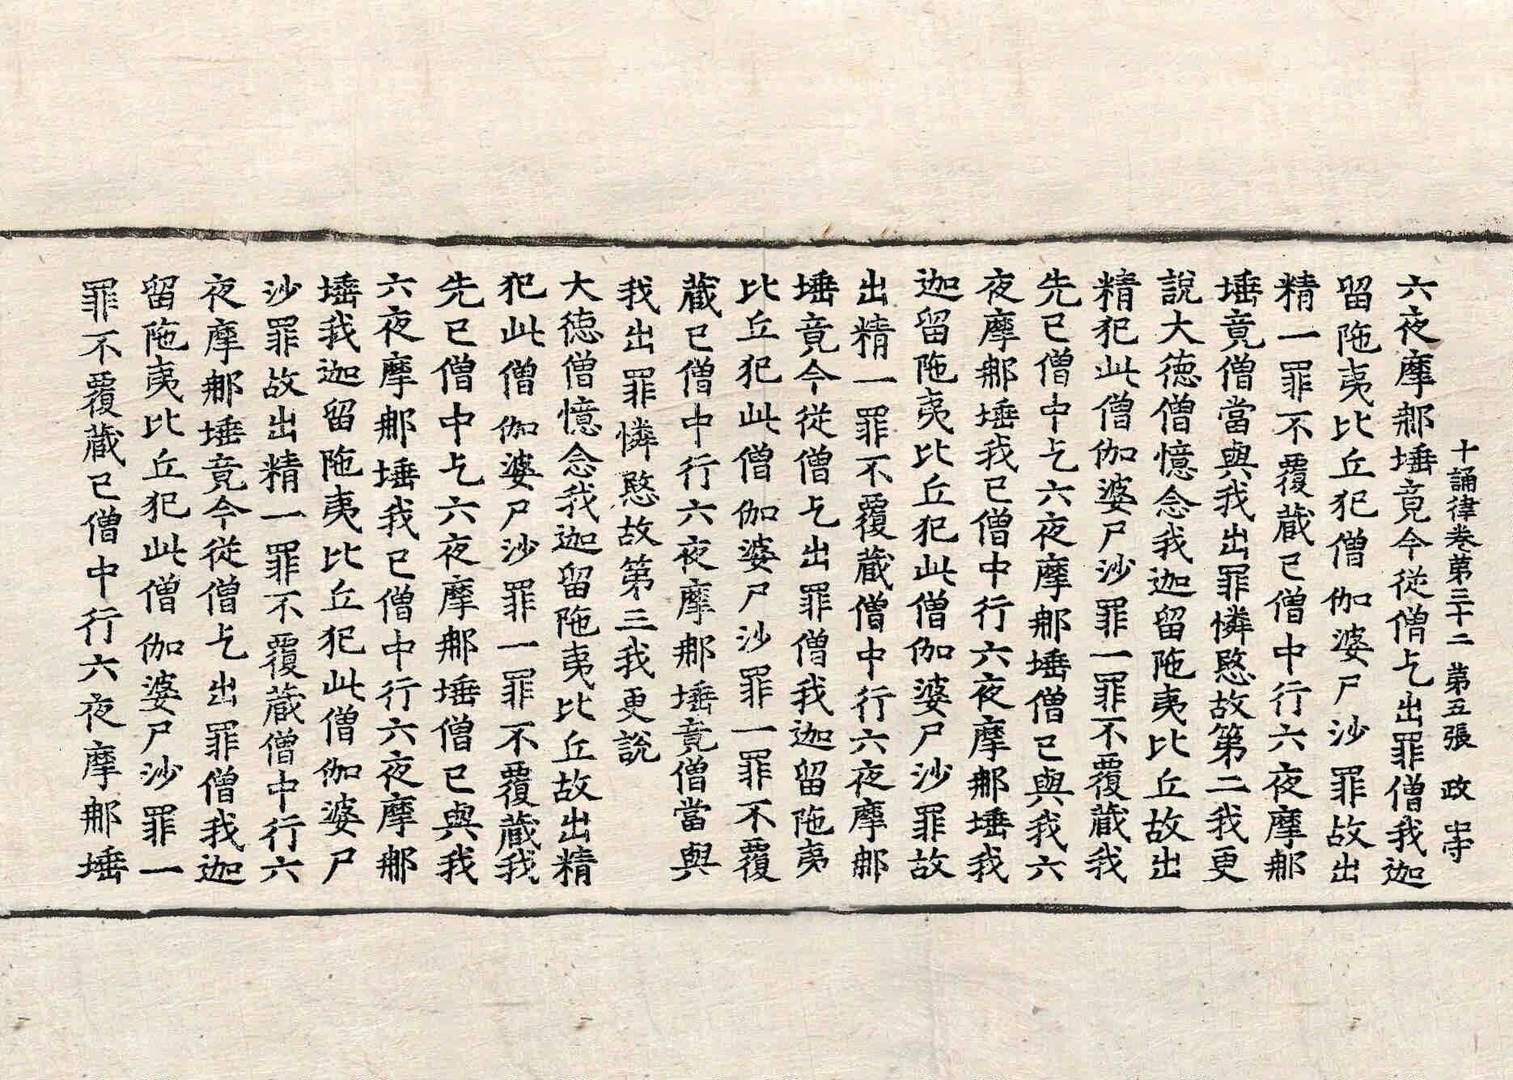 十誦律卷第三十二 第五張 政 字
六夜摩那埵竟今從僧乞出罪僧我迦
留陁夷比丘犯僧伽婆尸沙罪故出
精一罪不覆藏已僧中行六夜摩那
埵竟僧當與我出罪憐愍故第二我更
說大德僧憶念我迦留陁夷比丘故出
精犯此僧伽婆尸沙罪一罪不覆藏我
先已僧中乞六夜摩那埵僧已與我六
夜摩那埵我已僧中行六夜摩那埵我
迦留陁夷比丘犯此僧伽婆尸沙罪故
出精一罪不覆藏僧中行六夜摩那
埵竟今從僧乞出罪僧我迦留陁夷
比丘犯此僧伽婆尸沙罪一罪不覆
藏已僧中行六夜摩那埵竟僧當與
我出罪憐愍故第三我更說
大德僧憶念我迦留陁夷比丘故出精
犯此僧伽婆尸沙罪一罪不覆藏我
先已僧中乞六夜摩那埵僧已與我
六夜摩那埵我已僧中行六夜摩那
埵我迦留陁夷比丘犯此僧伽婆尸
沙罪故出精一罪不覆藏僧中行六
夜摩那埵竟今從僧乞出罪僧我迦
留陁夷比丘犯此僧伽婆尸沙罪一
罪不覆藏已僧中行六夜摩那埵